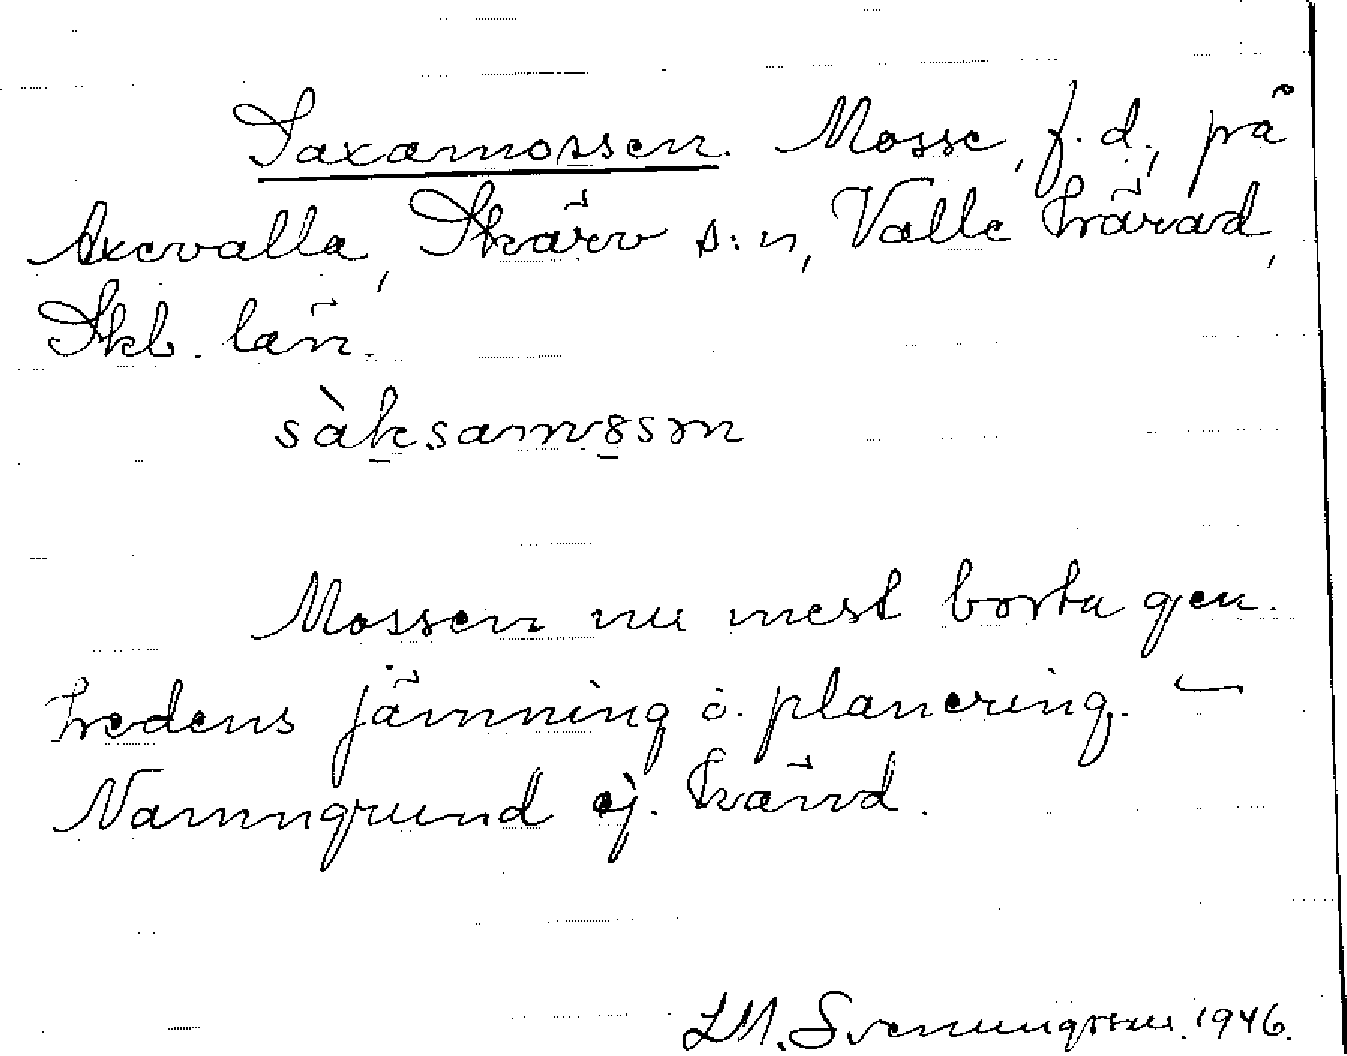 Saxamossen. Mosse, f.d., på
Axevalla, Skärv s:n, Valle härad,
Skb. län.
sàksamosɜn
Mossen nu mest borta gen.
hedens jämning o. planering. –
Namngrund ej. känd.
L.M. Svenungsson. 1946.